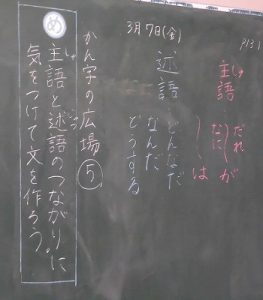 3月7日(金)
主語
しゅ
だれ
なに
が
は
述語
どんなだ
なんだ
どうする
かん字の広場⑤
め
主語と述語のつながりに
しゅ
気をつけて文を作ろう。